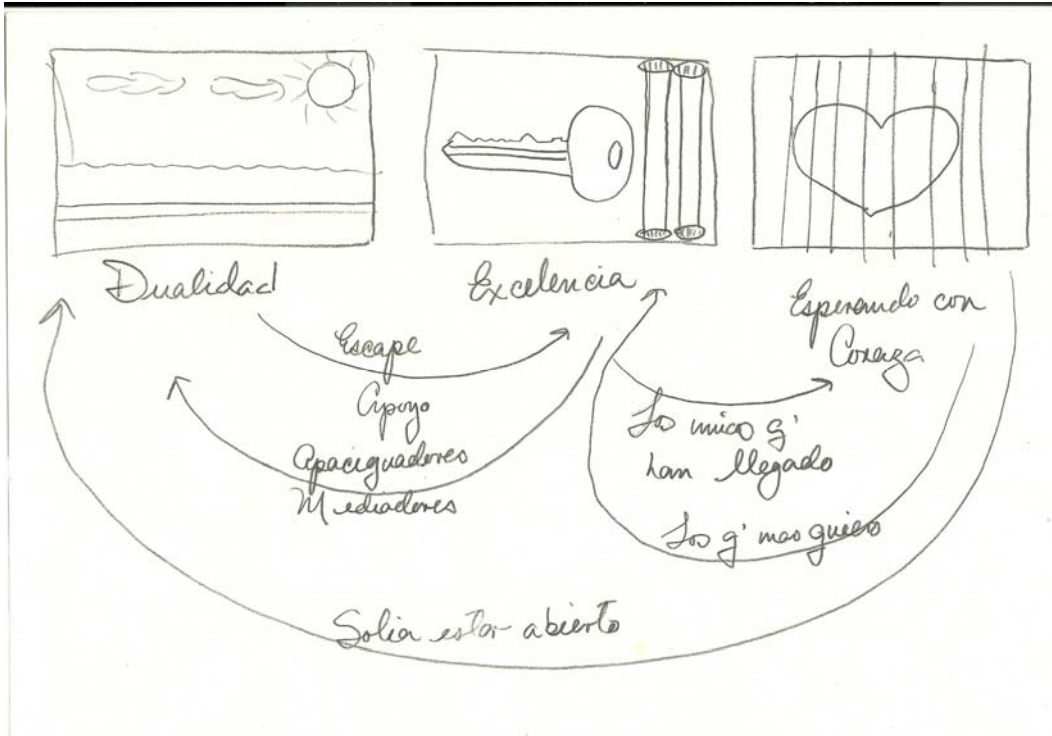 Dualidad
Excelencia
Esperando con
Coraza
Escape
Apoyo
Apaciguadores
Mediadores
Los unico q'
han llegado
Los q' mas quiero
Solia estar abierto